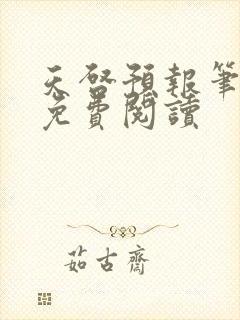 天啓預報筆
免費閱讀
茹古齋